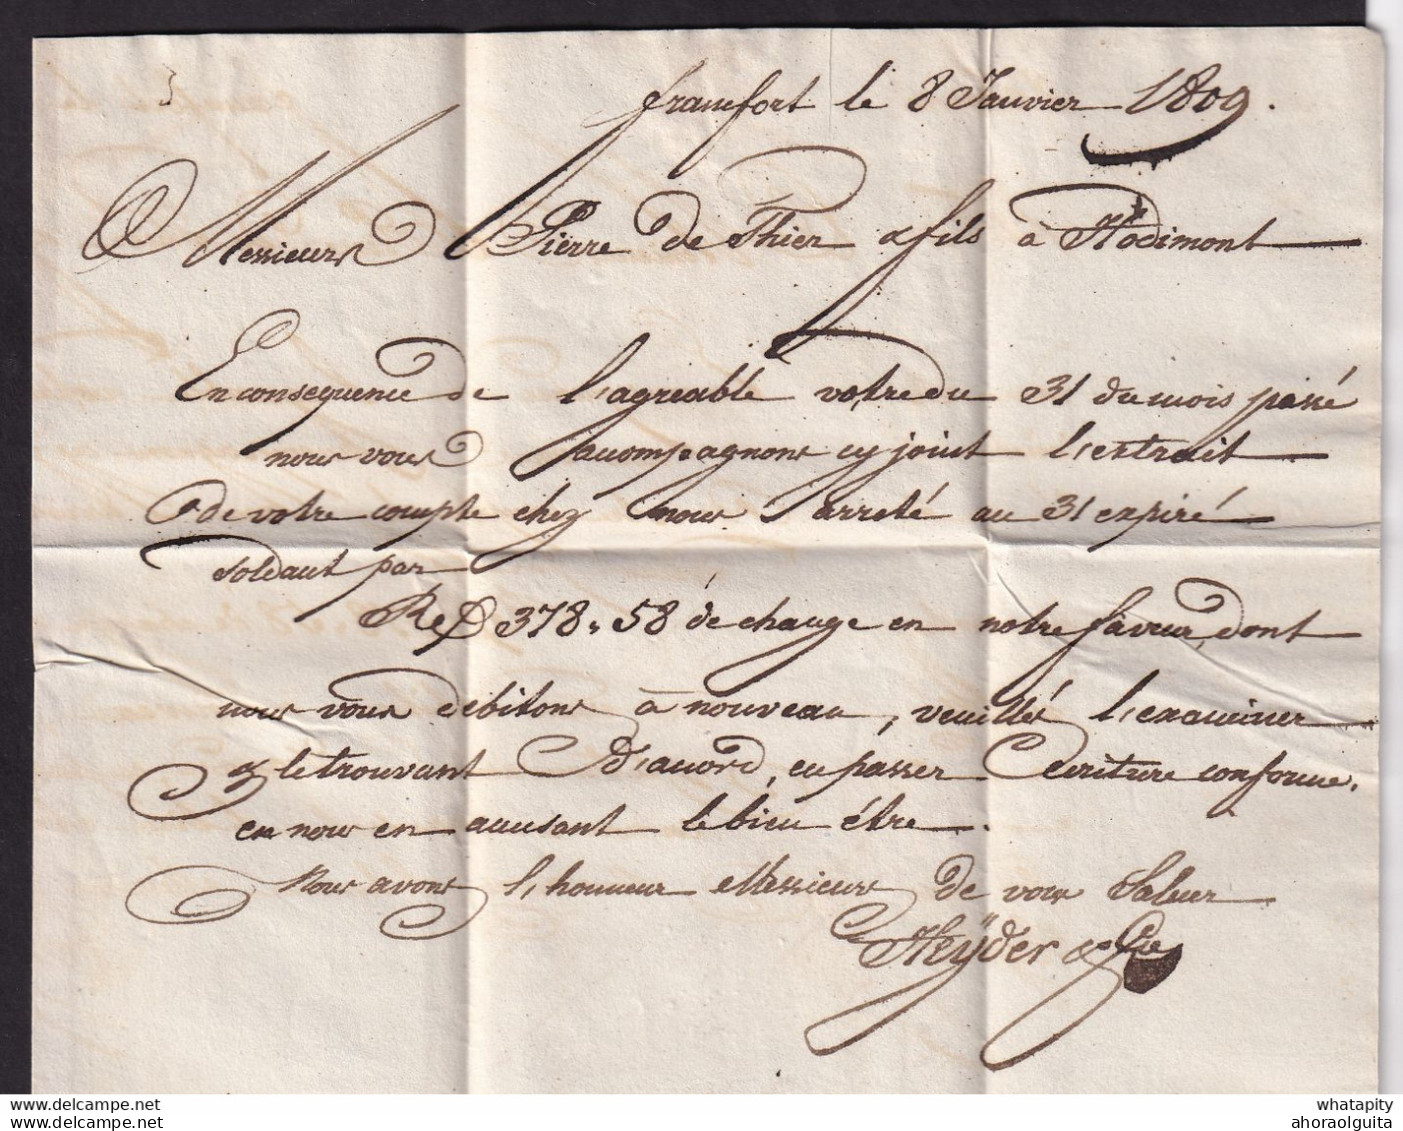 francfort le 8 Janvier 1809.
Messieurs Piërre de Thier & fils à Hodimont
En consequence de l'agreable votre du 31 du mois passé
nous vous acompagnons cy joint l'extrait
de votre compte chez nous arreté au 31 expiré
soldant par
378„58 de change en notre faveur, dont
nous vous debitons à nouveau, veuillés l'examiner
& le trouvant d'acord, en passer Ecriture conforme,
en nous en acusant le bien étre.
Nous avons l'honneur Messieurs de vous Saluer
Heÿder & Cie
whatapity
ahoraolguita